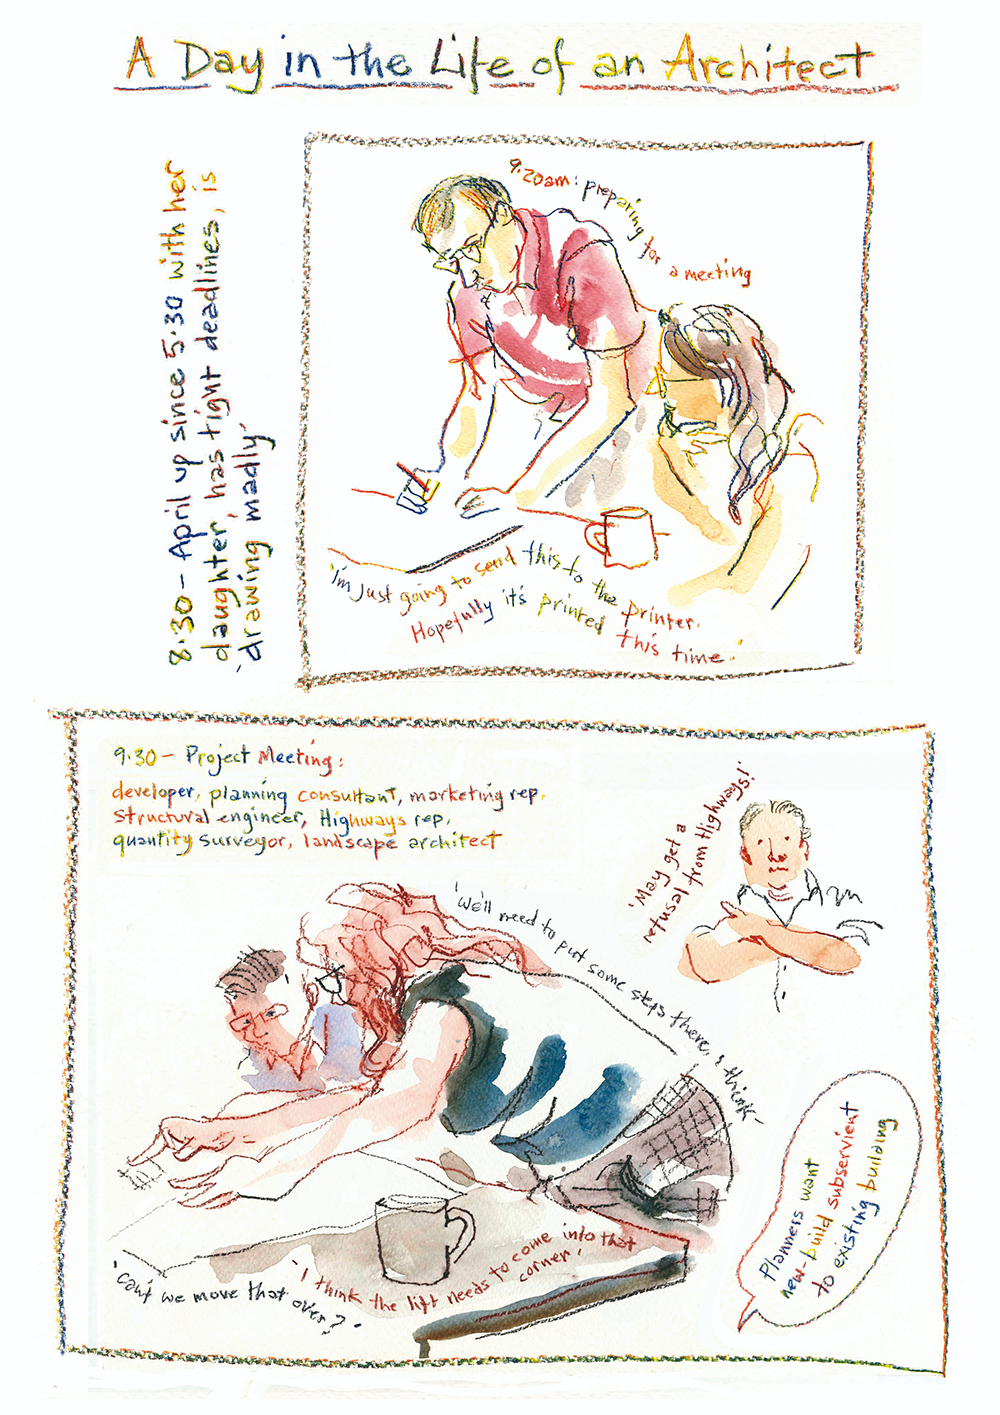 A Day in the Life of an Architect
8.30 – April up since 5.30 with her
daughter, has tight deadlines, is
'drawing madly'
9.20am: preparing for a meeting
'I'm just going to send this to the printer.
Hopefully it's printed this time.'
9.30 – Project Meeting:
developer, planning consultant, marketing rep,
structural engineer, Highways rep,
quantity surveyor, landscape architect
'May get a
refusal from Highways!'
'We'll need to put some steps there, I think'
Planners want
new-build subservient
to existing building
'I think the lift needs to come into that
corner'
'Can't we move that over?'